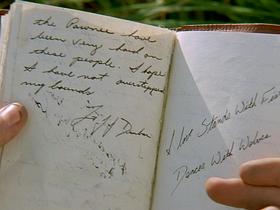 the Pawnee have
been very hard on
these people. I hope
I have not overstepped
my bounds
I love Stands With Fist
Dances With Wolves